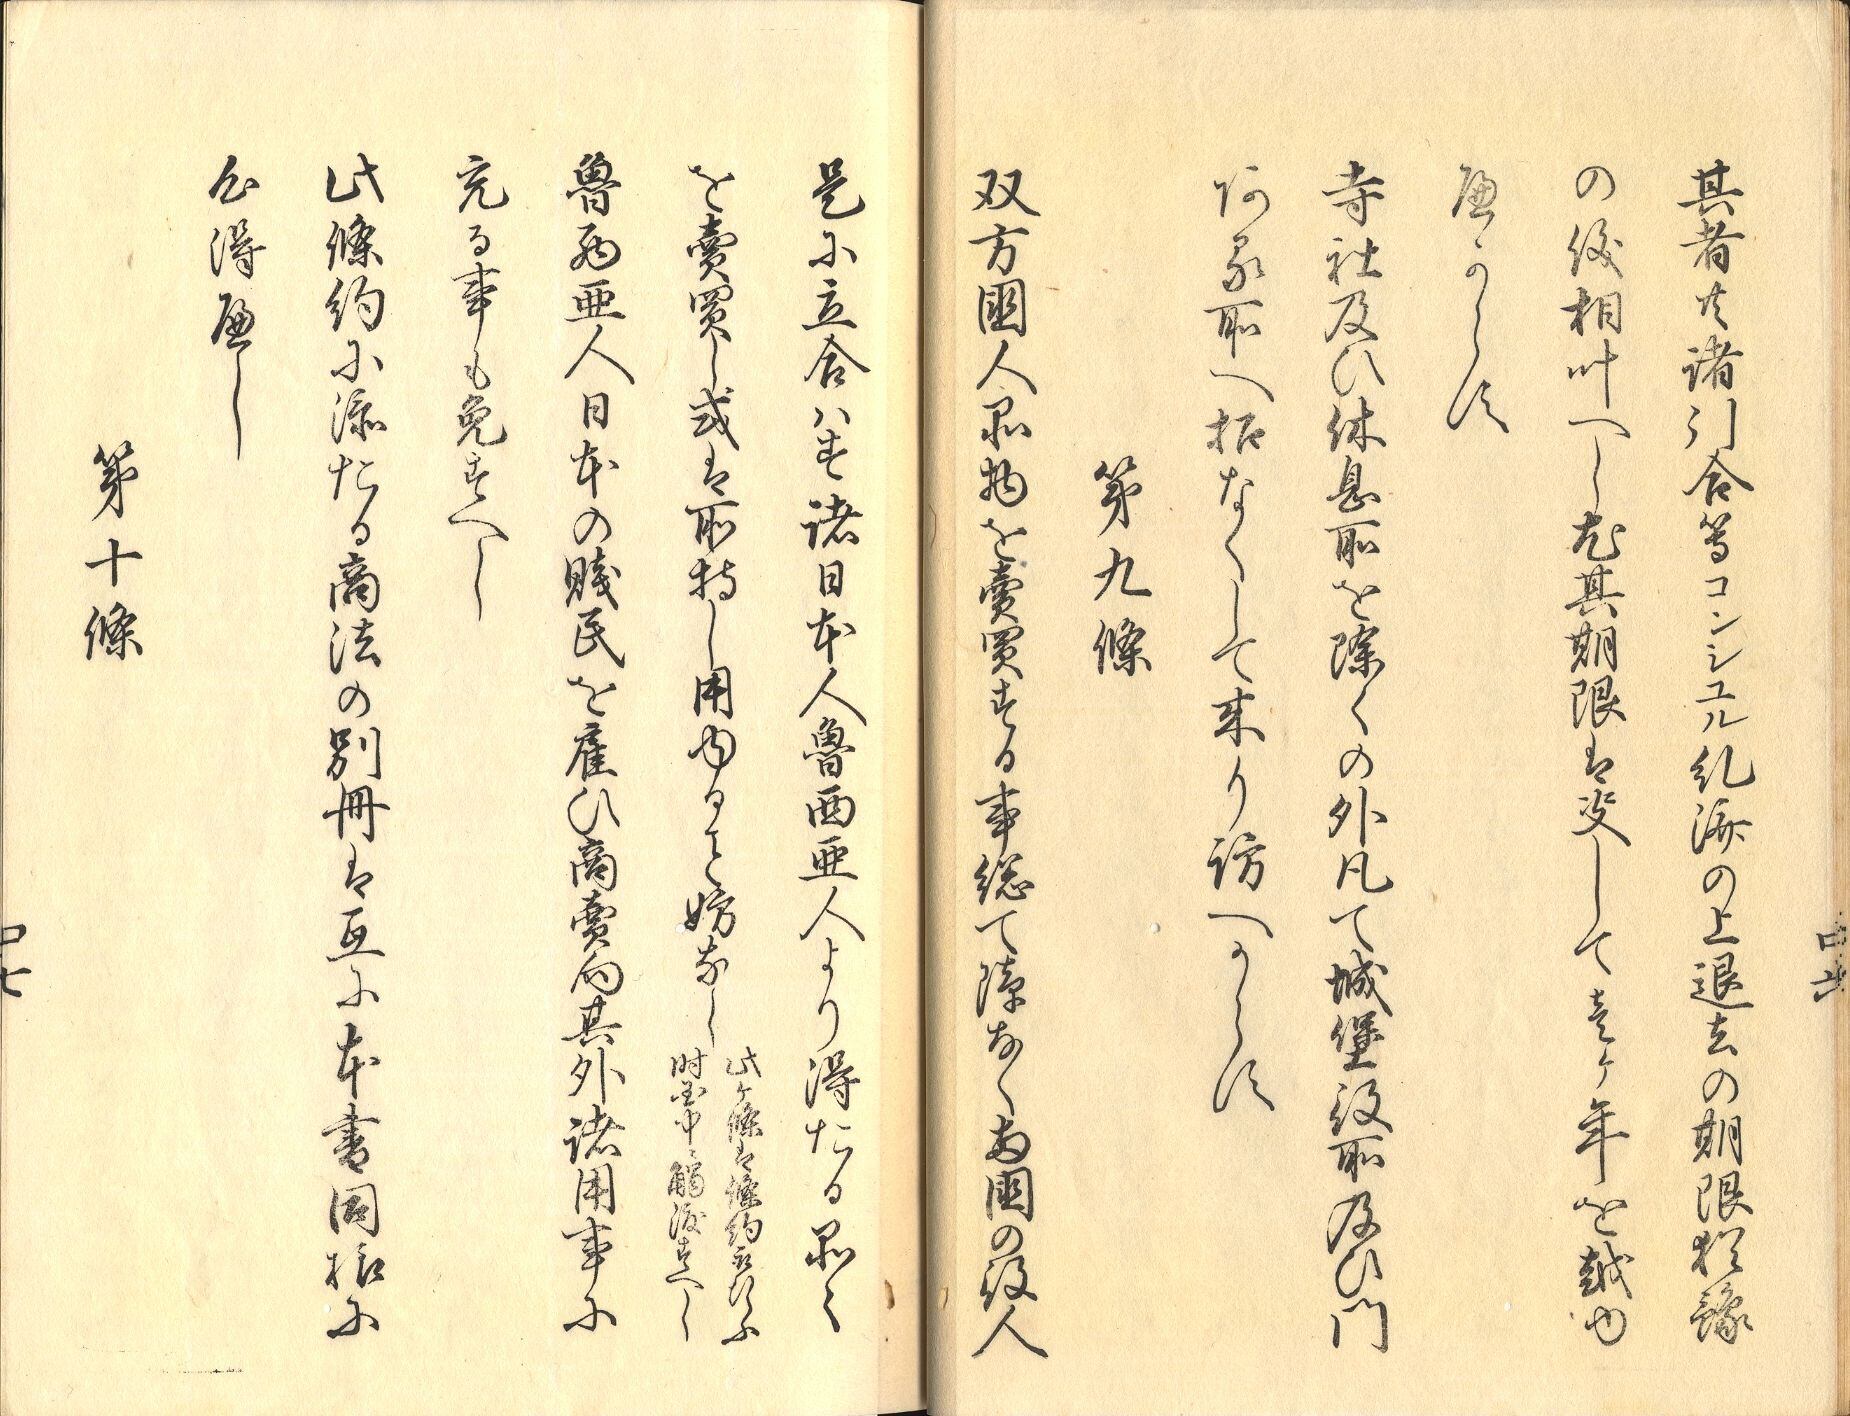 其者共諸引合等コンシユル糺済の上退去の期限猶豫
の儀相叶へし尤其期限は決して壱ヶ年を越ゆ
へからす
寺社及ひ休息所を除くの外凡て城堡役所及ひ門
ある所へ招なくして来り訪へからす
第九條
双方國人品物を賣買する事総て障なく両國の役人
是に立合はす諸日本人魯西亜人より得たる品々
を賣買し或は所持し用ゆるとも妨なし
此ヶ條は條約取行ふ
時國中へ觸渡すへし
魯西亜人日本の賤民を雇ひ商賣向其外諸用事に
充る事も免すへし
此條約に添たる商法の別冊は互に本書同様に
心得へし
第十條